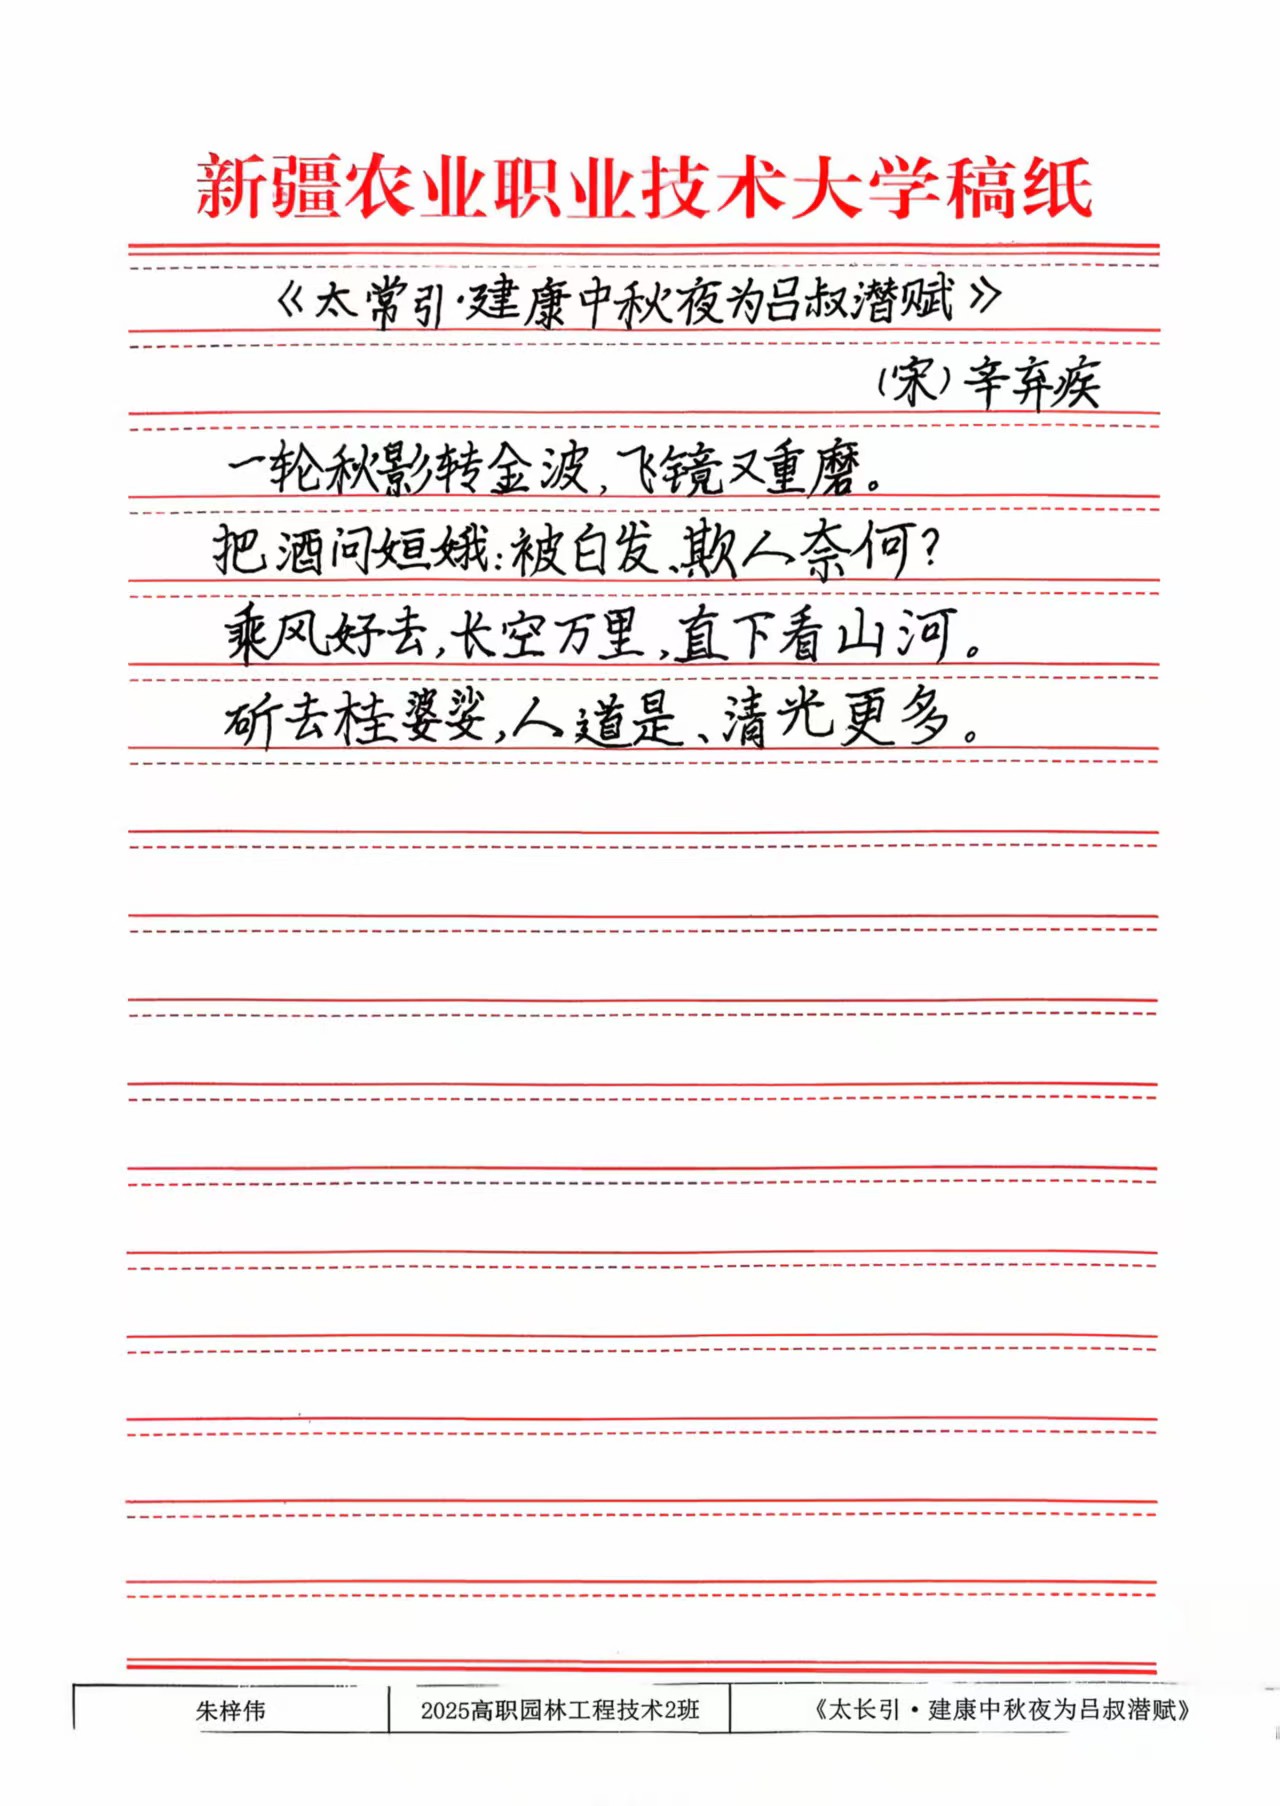 新疆农业职业技术大学稿纸
《太常引·建康中秋夜为吕叔潜赋》
（宋）辛弃疾
一轮秋影转金波，飞镜又重磨。
把酒问姮娥：被白发、欺人奈何？
乘风好去，长空万里，直下看山河。
斫去桂婆娑，人道是、清光更多。
朱梓伟
2025高职园林工程技术2班
《太长引·建康中秋夜为吕叔潜赋》